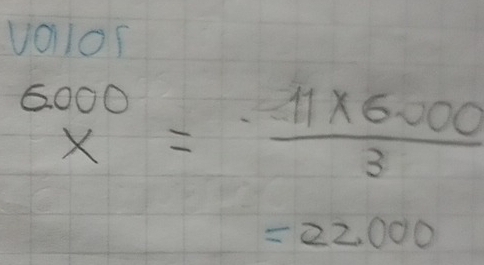 valor
6.000
x = 11 x 6.000
3
= 22.000